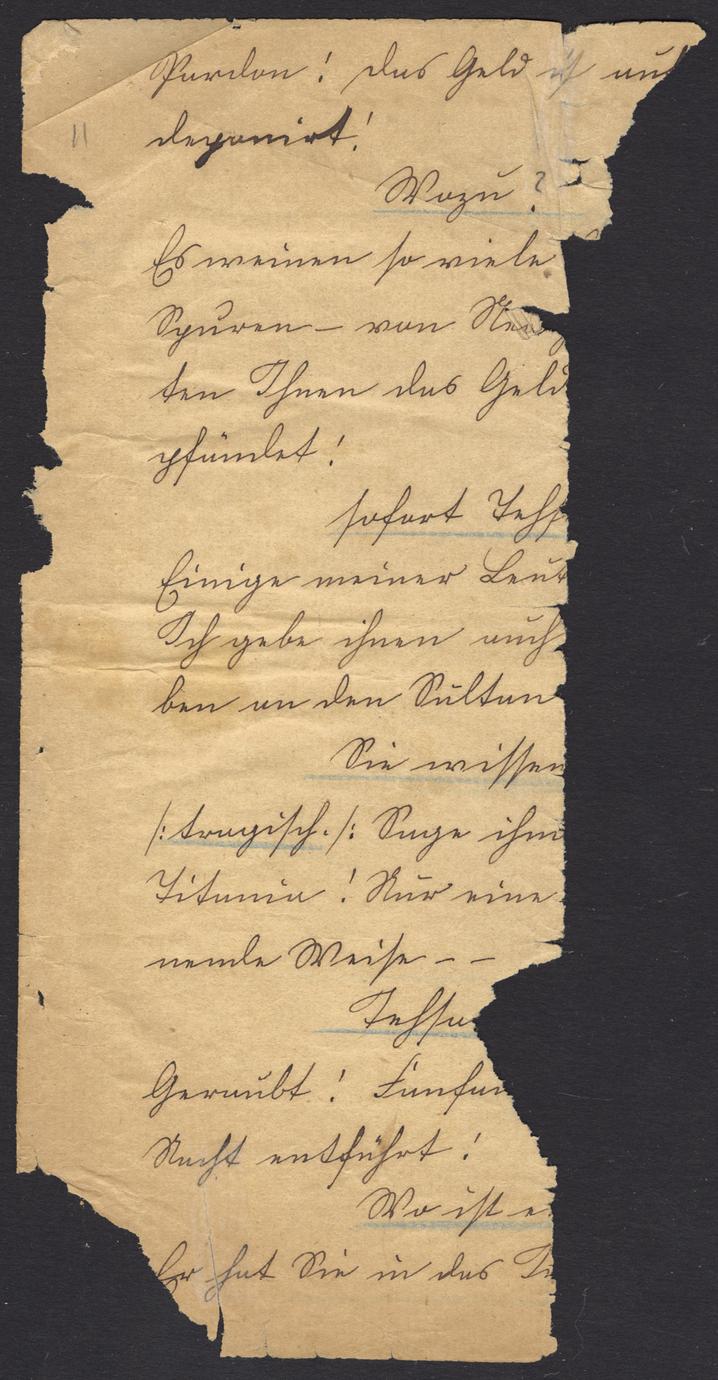 11
Pardon! das Geld ist auf
deponirt!
Wozu?
Es weinen so viele
Spuren – von
ten Ihnen das Geld
pfändet!
sofort
Einige meiner Leut
Ich gebe ihnen auch
ben an den Sultan
Sie wissen
/: tragisch. /: Sage ihm
Titania! Nur eine
nende Weise – –
Geraubt! Fanfan
Nacht entführt!
Wo ist e
Er hat Sie in das